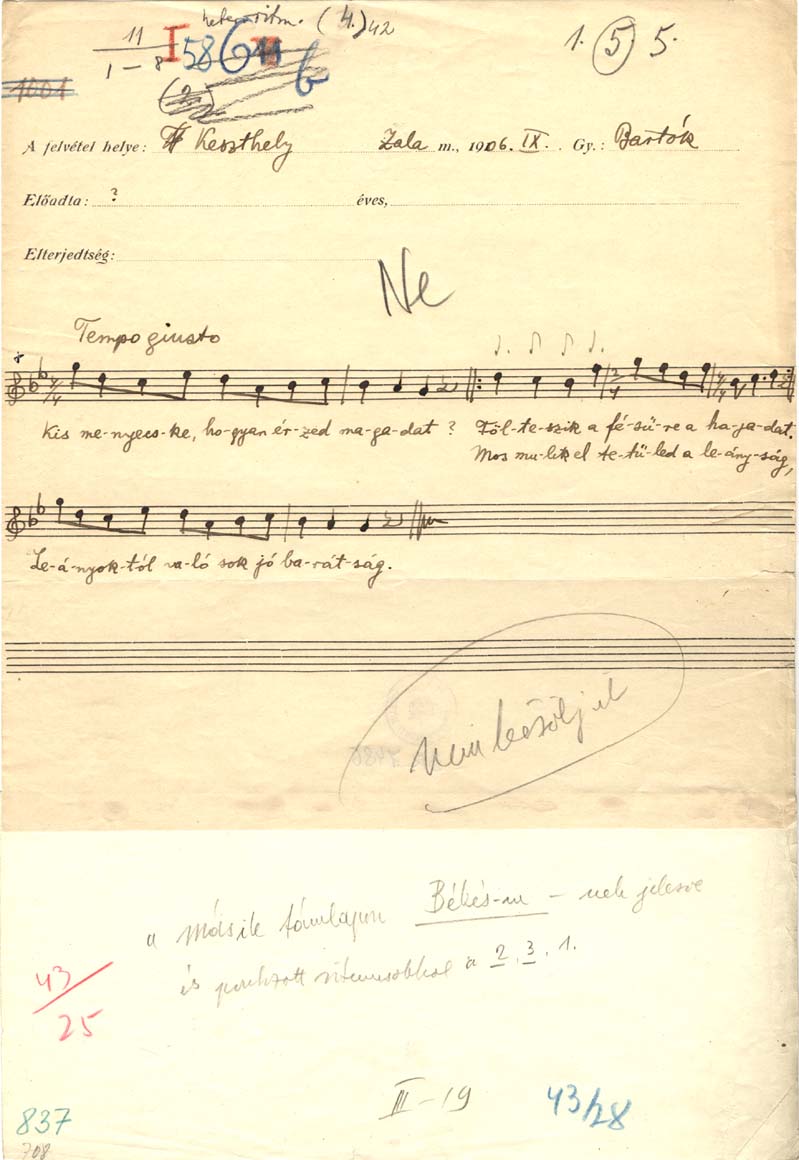 heteroritm. (4.) 42
11
1 – 8
I 58
b
1. 5 5.
1001
A felvétel helye: Keszthely Zala m., 1906. IX. Gy.: Bartók
Előadta: ? éves,
Elterjedtség:
Ne
Tempo giusto
Kis me-nyecs-ke, ho-gyan ér-zed ma-ga-dat? Föl-te-szik a fé-sü-re a ha-ja-dat.
Mos mu-lik el te-tü-led a le-ány-ság,
Le-á-nyok-tól va-ló sok jó ba-rát-ság.
a másik támlapon Békés-m – nek jelezve
és a 2, 3, 1.
43/25
III – 19
43/28
837
708